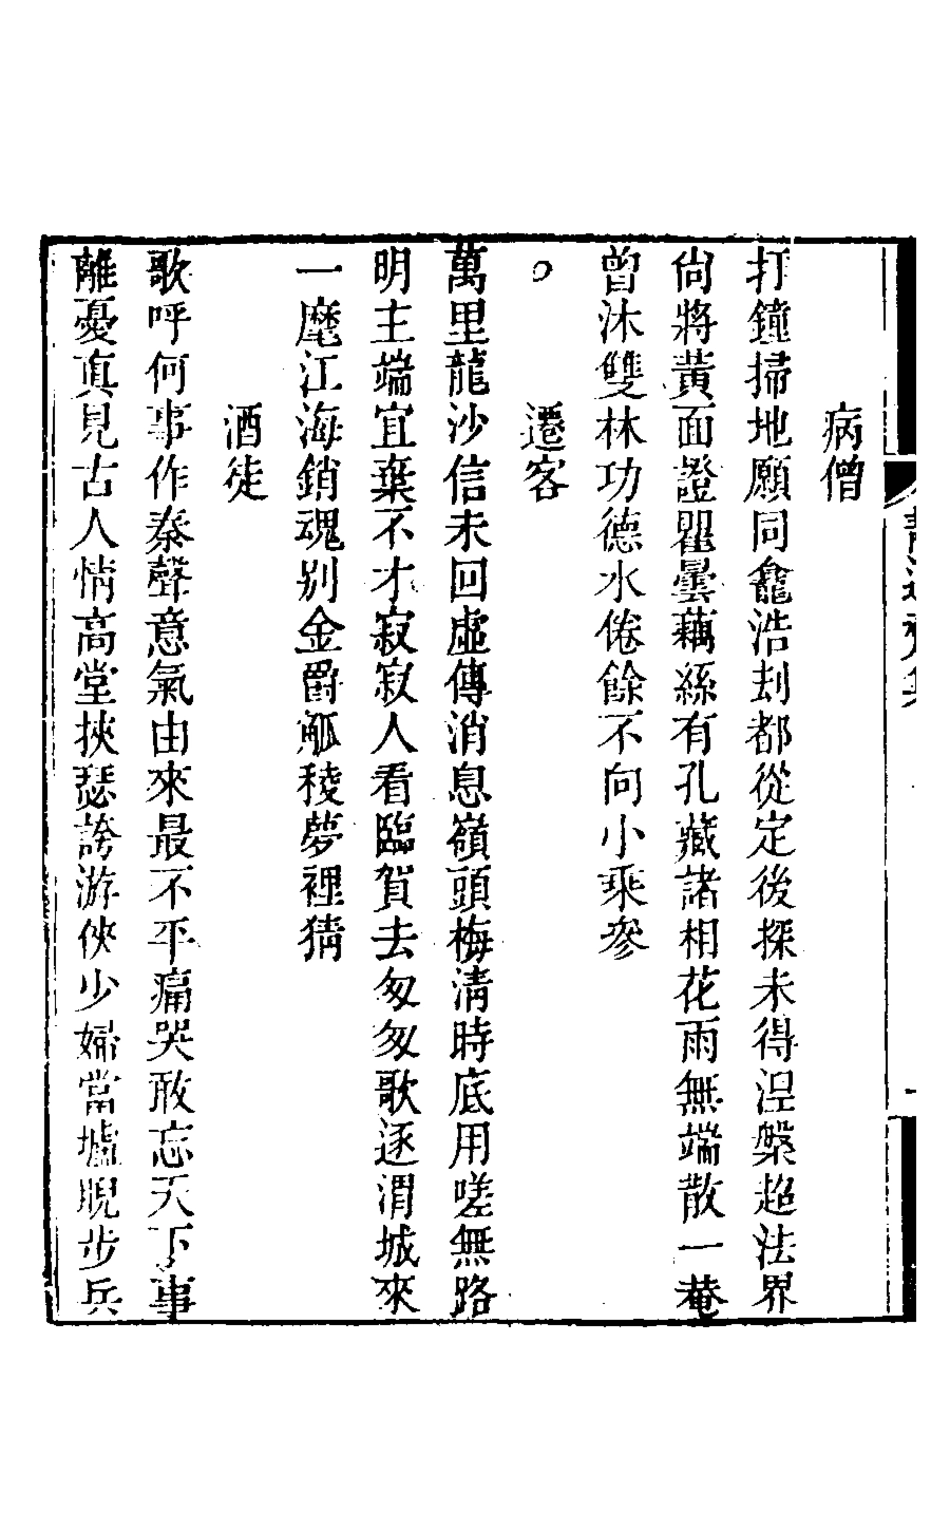 病僧
打鐘掃地願同龕浩刦都從定後探未得涅槃超法界
尙將黃面證瞿曇藕絲有孔藏諸相花雨無端散一菴
曾沐雙林功德水倦餘不向小乘參
遷客
萬里龍沙信未回虛傳消息嶺頭梅淸時底用嗟無路
明主端宜棄不才寂寂人看臨賀去匆匆歌逐渭城來
一麾江海銷魂别金爵觚稜夢裡猜
酒徒
歌呼何事作秦聲意氣由來最不平痛哭敢忘天下事
離憂眞見古人情高堂挾瑟誇游俠少婦當壚睨步兵